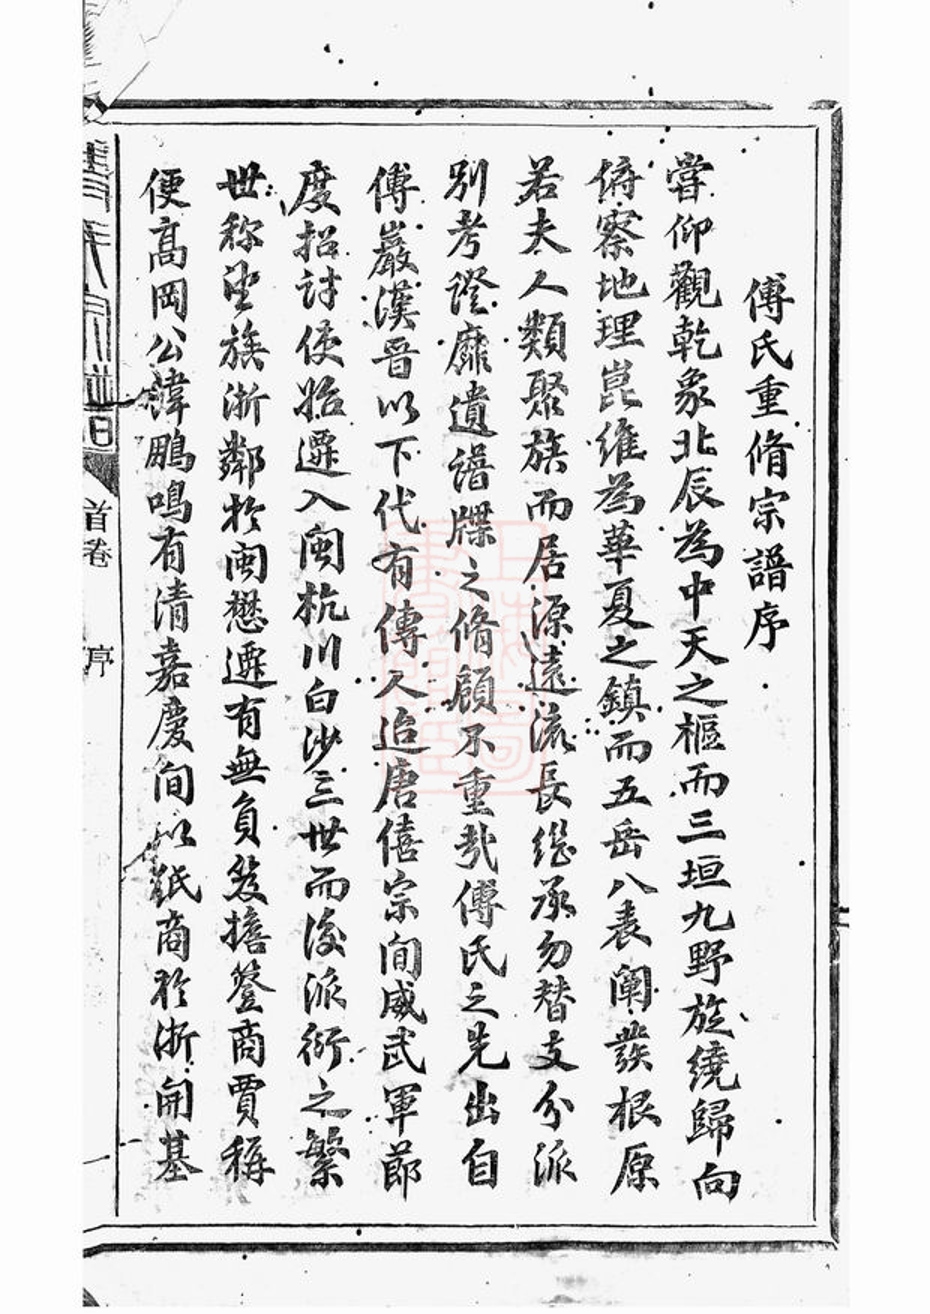 傅氏重脩宗譜序
嘗仰觀乾象北辰為中天之樞而三垣九野旋繞歸向
俯察地理崑維為華夏之鎮而五岳八表闡發根原
若夫人類聚族而居源遠流長繼承勿替支分派
別考證靡遺譜牒之脩顧不重哉傅氏之先出自
傅巖漢晉以下代有傳人迨唐僖宗間威武軍節
度招討使始遷入閩杭川白沙三世而後派衍之繁
世称望族浙鄰於閩懋遷有無負笈擔簦商賈稱
便高岡公諱鵬鳴有清嘉慶间以紙商於浙開基
首卷
序
一